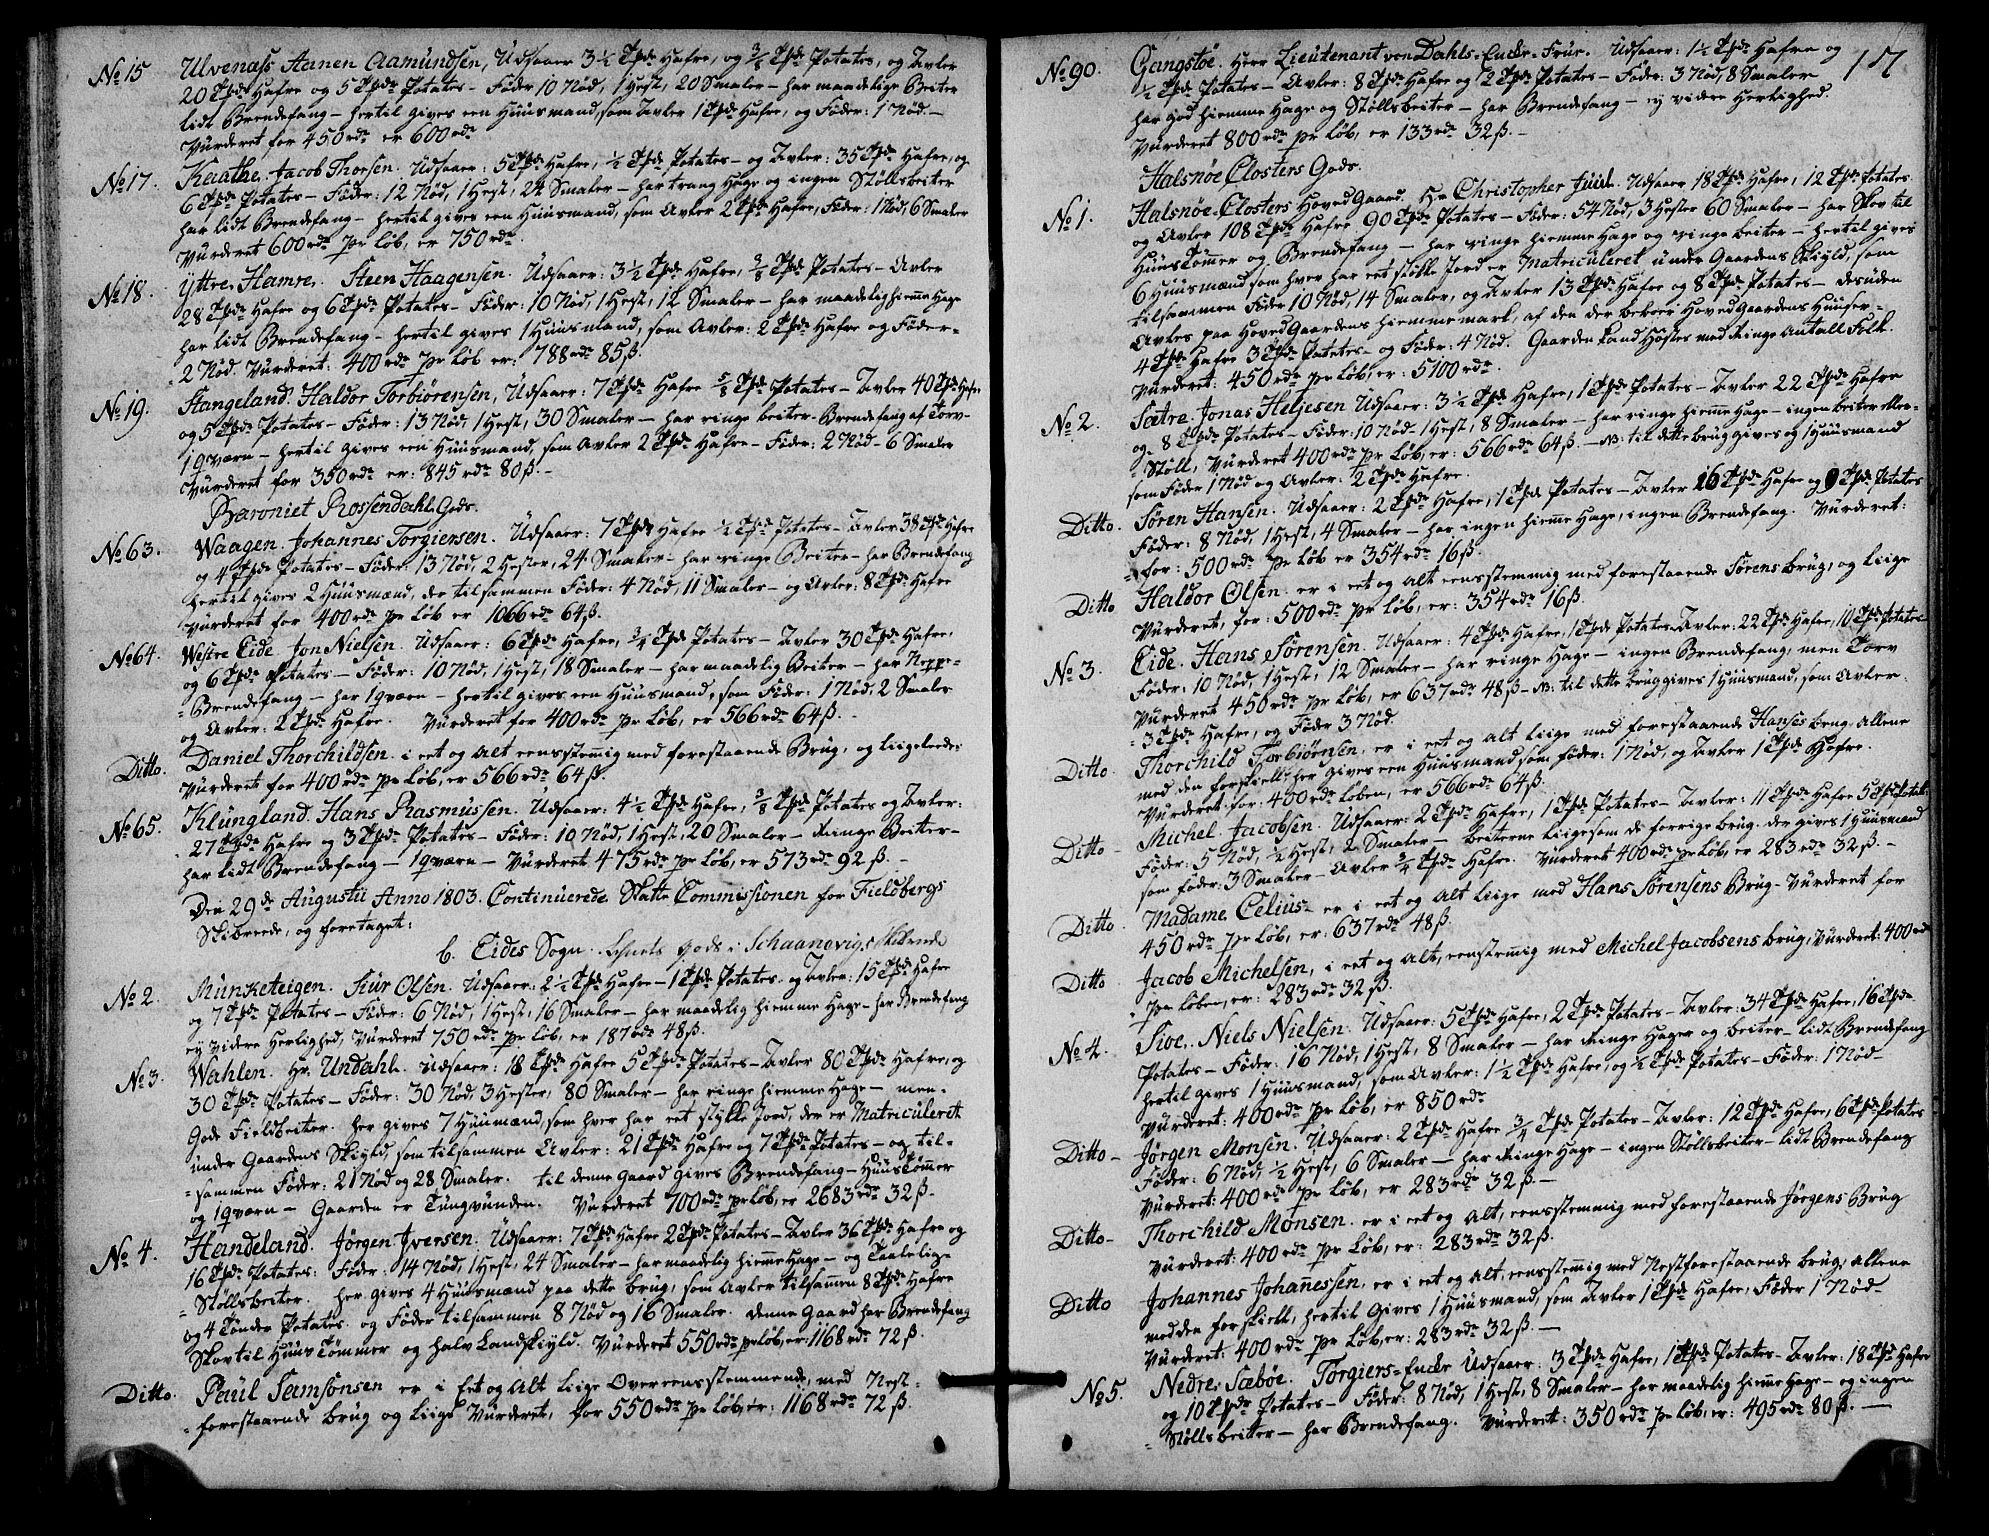 No 15 Ulvenæss Aanen Aamundsen, Udsaaer 3 1/2 Tnde Hafre, og 3/8 Tnde Potates, og Avler
20 Tndr Hafre og 5 Tndr Potates – Föder 10 Nöd, 1 Hest, 20 Smaler – har maadelige Beiter
lidt Brendefang – hertil gives een Huusmand, som Avler 1 Tnde Hafre, og Föder: 1 Nöd. –
Vurderet for 450 rdr er 600 rdr
No 17. Jacob Thorsen. Udsaaer: 5 Tndr Hafre, 1/2 Tnde Potates – og Avler: 35 Tndr Hafre, og
6 Tndr Potates – Föder: 12 Nöd, 1 Hest, 24 Smaler – har trang Hage og ingen Stöllsbeiter
har lidt Brendefang – hertil gives een Huusmand, som Avler 2 Tndr Hafre, Föder: 1 Nöd, 6 Smaler
Vurderet 600 rdr pr Löb, er 750 rdr.
No 18. Yttre Hamre. Steen Haagensen. Udsaaer: 3 1/2 Tndr Hafre, 3/8 Tnde Potates – Avler
28 Tndr Hafre og 6 Tndr Potates – Föder: 10 Nöd, 1 Hest, 12 Smaler – har maadelig hieme Hage
har lidt Brendefang – hertil gives 1 Huusmand, som Avler: 2 Tndr Hafre og Föder –
2 Nöd. Vurderet: 400 rdr pr Löb er: 788 rdr 85 ß.
No 19. Stangeland. Haldor Torbiörensen, Udsaaer: 7 Tndr Hafre 5/8 Tnde Potates – Avler 40 Tndr Hafre
og 5 Tndr Potates – Föder: 13 Nöd, 1 Hest, 30 Smaler – har ringe beiter – Brendefang af Torv –
1 qværn – hertil gives een Huusmand, som Avler 2 Tndr Hafre – Föder: 2 Nöd – 6 Smaler
Vurderet for 350 rdr er: 845 rdr 80 ß. –
Baroniet Rossendahl Gods.
No 63. Waagen. Johannes Torgiersen. Udsaaer: 7 Tndr Hafre 1/2 Tnde Potates – Avler 38 Tndr Hafre
og 4 Tndr Potates – Föder: 13 Nöd, 2 Hester, 24 Smaler – har ringe Beiter – har Brendefang
hertil gives 2 Huusmænd, der tilsammen Föder: 4 Nöd, 11 Smaler – og Avler: 8 Tndr Hafre
Vurderet for 400 rdr pr Löb er 1066 rdr 64 ß.
No 64. Westre Eide Jon Nielsen. Udsaaer: 6 Tndr Hafre, 3/4 Tnde Potates – Avler 30 Tndr Hafre,
og 6 Tndr Potates – Föder: 10 Nöd, 1 Hest, 18 Smaler – har maadelig Beiter – har
Brendefang – har 1 qværn – hertil gives een Huusmand, som Föder: 1 Nöd, 2 Smaler
og Avler: 2 Tndr Hafre. Vurderet for 400 rdr pr Löb, er 566 rdr 64 ß. –
Ditto. Daniel Thorchildsen. i eet og Alt eensstemig med forestaaende Brug, og liigeledes
Vurderet for 400 rdr pr Löb, er 566 rdr 64 ß.
No 65. Klungland. Hans Rasmussen. Udsaaer: 4 1/2 Tndr Hafre, 3/8 Tnde Potates og Avler:
27 Tndr Hafre og 3 Tndr Potates – Föder: 10 Nöd 1 Hest, 20 Smaler – Ringe Beiter –
har lidt Brendefang – 1 qværn – Vurderet 475 rdr pr Löb, er 573 rdr 92 ß. –
Den 29de Augustii Anno 1803. Continuerede Skatte Commissionen for Fieldbergs
Skibreede, og foretaget:
b. Eides Sogn. Gods i Schaanevigs
No 2. Munketeigen. Siur Olsen. Udsaaer: 2 1/2 Tndr Hafre – 1 Tnde Potates. og Avler: 15 Tndr Hafre
og 7 Tndr Potates – Föder: 6 Nöd, 1 Hest, 16 Smaler – har maadelig hiemme Hage – har Brendefang
ey videre Herlighed, Vurderet 750 rdr pr Löb, er 187 rdr 48 ß.
No 3. Wahlen. Hr. Undahl. Udsaaer: 18 Tndr Hafre 5 Tndr Potates – Avler 80 Tndr Hafre, og
30 Tndr Potates – Föder: 30 Nöd, 3 Hester, 80 Smaler – har ringe hiemme Hage – men –
Gode Fieldbeiter. her gives 7 Huusmænd, som hver har eet stykke Jord, der er Matriculeret
under Gaardens Skyld, som tilsammen Avler: 21 Tndr Hafre og 7 Tndr Potates – og til-
-sammen Föder: 21 Nöd og 28 Smaler. til denne Gaard gives Brendefang – Huus Tömmer
og 1 qværn – Gaarden er Tungvunden. Vurderet 700 rdr pr löb, er 2683 rdr 32 ß. –
No 4. Handeland. Jörgen Iversen. Udsaaer: 7 Tndr Hafre 2 Tndr Potates – Avler 36 Tndr Hafre og
16 Tndr Potates: Föder: 14 Nöd, 1 Hest, 24 Smaler – har maadelig hieme Hage – og Taalelige
Stöllsbeiter. her gives 4 Huusmænd paa dette brug, som Avler tilsamen 8 Tndr Hafre
og 4 Tönder Potates og Föder tilsammen 8 Nöd og 16 Smaler. denne Gaard har Brendefang
Skov til Huus Tömmer og halv Landskyld. Vurderet 550 rdr pr löb, er: 1168 rdr 72 ß.
Ditto. Paul Samsonsen er i Eet og Alt liige Overeensstemmende, med Nest-
forestaaende brug og liige Vurderet, for 550 rdr pr Löb, er: 1168 rdr 72 ß.
17
No 90. Gangstöe. Herr Lieutenant von Dahls Encke-Frue. Udsaaer: 1 1/2 Tnde Hafre og
1/2 Tnde Potates – Avler: 8 Tndr Hafre og 2 Tndr Potates – Föder: 3 Nöd, 8 Smaler
har god hiemme Hage og Stöllsbeiter – har Brendefang – ey videre Herlighed.
Vurderet 800 rdr pr Löb, er 133 rdr 32 ß. –
Halsnöe Closters Gods.
No 1. Halsnöe Closters Hoved Gaard. Hr Christopher Juul. Udsaaer 18 Tndr Hafre, 12 Tndr Potates
og Avler 108 Tndr Hafre 90 Tndr Potates – Föder: 54 Nöd, 3 Hester 60 Smaler – har Skov til
Huus Tömmer og Brendefang – har ringe hiemme Hage og ringe beiter – hertil gives
6 Huusmænd som hver har eet stökke Jord er Matriculeret under Gaardens Skyld, som
tilsammen Föder 10 Nöd, 14 Smaler, og Avler 13 Tndr Hafre og 8 Tndr Potates – desuden
Avles paa Hoved Gaardens hiemmemark, af den der beboer Hoved Gaardens Huuser –
4 Tndr Hafre 3 Tndr Potates – og Föder: 4 Nöd. Gaarden kand Höstes med Ringe Antall Folk.
Vurderet: 450 rdr pr Löb, er: 5100 rdr.
No 2. Sætre. Jonas Heljesen Udsaaer: 3 1/2 Tndr Hafre, 1 Tnde Potates – Avler 22 Tndr Hafre
og 8 Tndr Potates – Föder: 10 Nöd – 1 Hest, 8 Smaler – har ringe hieme Hage – ingen beiter eller
Stöll, Vurderet 400 rdr pr Löb, er: 566 rdr 64 ß. – NB: til dette brug gives og 1 Huusmand
som Föder 1 Nöd og Avler: 2 Tndr Hafre.
Ditto. Sören Hansen. Udsaaer: 2 Tndr Hafre, 1 Tnde Potates – Avler 16 Tndr Hafre og 9 Tndr Potates
Föder: 8 Nöd, 1 Hest, 4 Smaler – har ingen hieme Hage, ingen Brendefang. Vurderet:
for: 500 rdr pr Löb er 354 rdr 16 ß.
Ditto Haldor Olsen. er i eet og Alt eensstemmig med forestaaende Sörens brug, og liige
Vurderet, for: 500 rdr pr Löb, er: 354 rdr 16 ß.
No 3. Eide. Hans Sörensen. Udsaaer: 4 Tndr Hafre, 1 Tnde Potates – Avler: 22 Tndr Hafre, 10 Tndr Potates
Föder: 10 Nöd, 1 Hest, 12 Smaler – har ringe Hage – ingen Brendefang, men Torv
Vurderet 450 rdr pr Löb, er 637 rdr 48 ß – NB: til dette brug gives 1 Huusmand, som Avler
3 Tndr Hafre, og Föder 3 Nöd.
Ditto. Thorchild Torbiörnsen. er i eet og Alt liige med forestaaende Hanses brug, Allene
med den forskiell, her gives een Huusmand som föder: 1 Nöd, og Avler 1 Tnde Hafre.
Vurderet for: 400 rdr Löben, er 566 rdr 64 ß.
Ditto – Michel Jacobsen. Udsaaer: 2 Tndr Hafre, 1 Tnde Potates – Avler: 11 Tndr Hafre 5 Tndr Potates
Föder: 5 Nöd, 1/2 Hest, 2 Smaler – beiterne liigesom de forrige brug. der gives 1 Huusmand
som föder: 3 Smaler – Avler 3/4 Tnde Hafre. Vurderet 400 rdr pr Löb, er 283 rdr 32 ß. –
Ditto. Madame Celius – er i eet og Alt liige med Hans Sörensens Brug – Vurderet for
450 rdr pr Löb, er: 637 rdr 48 ß.
Ditto Jacob Michelsen, i eet og Alt, eenstemig med Michel Jacobsens brug, Vurderet: 400 rdr
pr Löben, er: 283 rdr 32 ß.
No 4. Sioe. Niels Nielsen. Udsaaer: 5 Tndr Hafre, 2 Tndr Potates – Avler: 34 Tndr Hafre, 16 Tndr
Potates – Föder: 16 Nöd, 1 Hest, 8 Smaler – har Ringe Hager og beiter – lidt Brendefang
hertil gives 1 Huusmand, som Avler: 1 1/2 Tnde Hafre, og 1/2 Tnde Potates – Föder: 1 Nöd –
Vurderet: 400 rdr pr Löb, er 850 rdr
Ditto – Jörgen Monsen. Udsaaer: 2 Tndr Hafre 3/4 Tnde Potates – Avler: 12 Tndr Hafre, 6 Tndr Potates
Föder: 6 Nöd, 1/2 Hest, 6 Smaler – har Ringe Hage – ingen Stöllsbeiter – lidt Brendefang
Vurderet: 400 rdr pr Löb, er 283 rdr 32 ß. –
Ditto – Thorchild Monsen. er i eet og Alt, eensstemmig med forestaaende Jörgens Brug
Vurderet: 400 rdr pr Löb, er: 283 rdr 32 ß.
Ditto Johannes Johanessen, er i eet og Alt, eensstemig med Nestforestaaende brug, allene
med den forskiell, hertil Gives 1 Huusmand, som Avler 1 Tnde Hafre, Föder 1 Nöd –
Vurderet: 400 rdr pr Löb, er: 283 rdr 32 ß. –
No 5. Nedre Sæböe. Torgiers-Encke Udsaaer: 3 Tndr Hafre, 1 Tnde Potates – Avler: 18 Tndr Hafre
og 10 Tndr Potates – Föder: 8 Nöd, 1 Hest, 8 Smaler – har maadelig hieme Hage – og ingen
Stöllsbeiter – har Brendefang. Vurderet: 350 rdr pr Löb, er: 495 rdr 80 ß. –